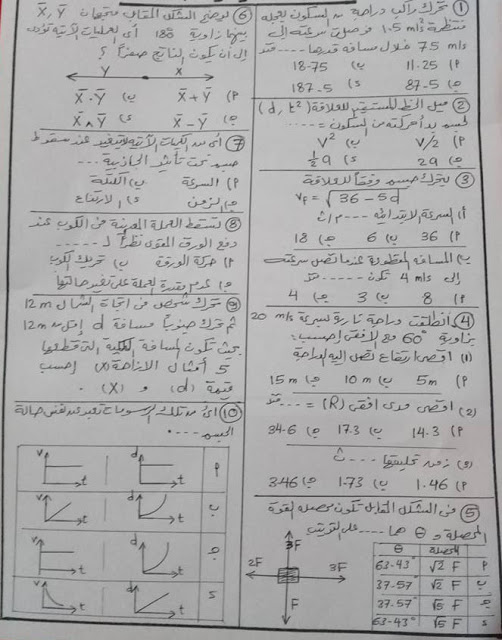 ① تحرك راكب دراجة من السكون بعجلة
منتظمة 1.5 m/s² فوصلت سرعته إلى
7.5 m/s خلال مسافة قدرها .... متر
P) 11.25 ب) 18.75
ج) 87.5 د) 187.5
② ميل الخط المستقيم للعلاقة (d, t²)
لجسم بدأ حركته من السكون = ....
P) V/2 ب) V²
ج) 2g د) ½g
③ يتحرك جسم وفقاً للعلاقة
Vf = √36 - 5d
أ) السرعة الابتدائية .... م/ث
P) 36 ب) 6 ج) 18
ب) المسافة المقطوعة عندما تصل سرعته
إلى 4 m/s تكون .... متر
P) 8 ب) 3 ج) 4
④ انطلقت دراجة نارية بسرعة 20 m/s
بزاوية 60° مع الأفقى احسب:
(1) أقصى ارتفاع تصل إليه الدراجة
P) 5m ب) 10 m ج) 15 m
(2) أقصى مدى أفقى (R) = .... متر
P) 14.3 ب) 17.3 ج) 34.6
زمن تحليقها .... ث
P) 1.46 ب) 1.73 ج) 3.46
⑤ فى الشكل المقابل تكون محصلة القوة
المحصلة و θ هما .... على الترتيب
المحصلة θ
P √2 F 63.43°
ب √2 F 37.57°
ج √5 F 37.57°
د √5 F 63.43°
3F
2F 3F
F
⑥ يوضح الشكل المقابل متجهان X̄, Ȳ
بينهما زاوية 180° أى العمليات الآتية تؤدى
إلى أن يكون الناتج صفراً؟
Y X
P) X̄ + Ȳ ب) X̄ · Ȳ
ج) X̄ - Ȳ د) X̄ ∧ Ȳ
⑦ أى من الكميات الآتية لا يتغير عند سقوط
جسم تحت تأثير الجاذبية ....
P) السرعة ب) الكتلة
ج) الزمن د) الارتفاع
⑧ تسقط العملة المعدنية فى الكوب عند
دفع الورق المقوى نظراً لـ ....
P) حركة الورقة ب) تحريك الكوب
ج) عدم مقدرة العملة على تغيير حالتها
⑨ تحرك شخص فى اتجاة الشمال 12 m
ثم تحرك جنوباً مسافة d أقل من 12 m
بحيث تكون المسافة الكلية التى قطعها
5 أمثال الإزاحة (X) احسب
قيمة (d) و (X) .
⑩ أى من تلك الرسومات تعبر عن نفس حالة
الجسم ....
v t d t P
v t d t ب
v t d t ج
v t d t د